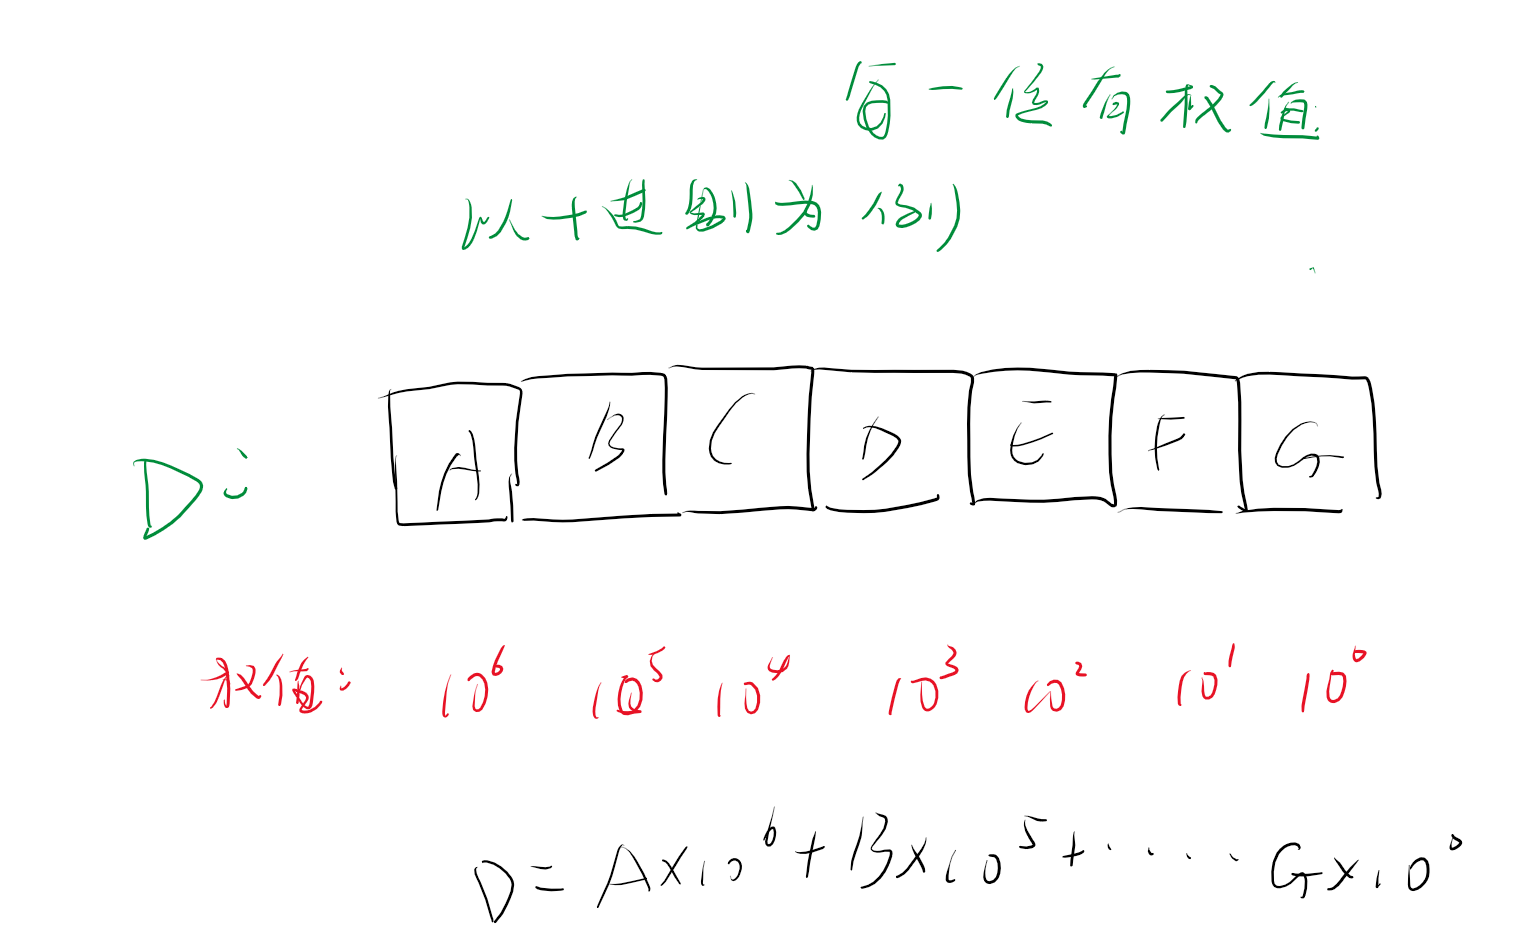 每一位有权值
以十进制为例
D: A B C D E F G
权值: 10⁶ 10⁵ 10⁴ 10³ 10² 10¹ 10⁰
D = A×10⁶ + B×10⁵ + ····· G×10⁰